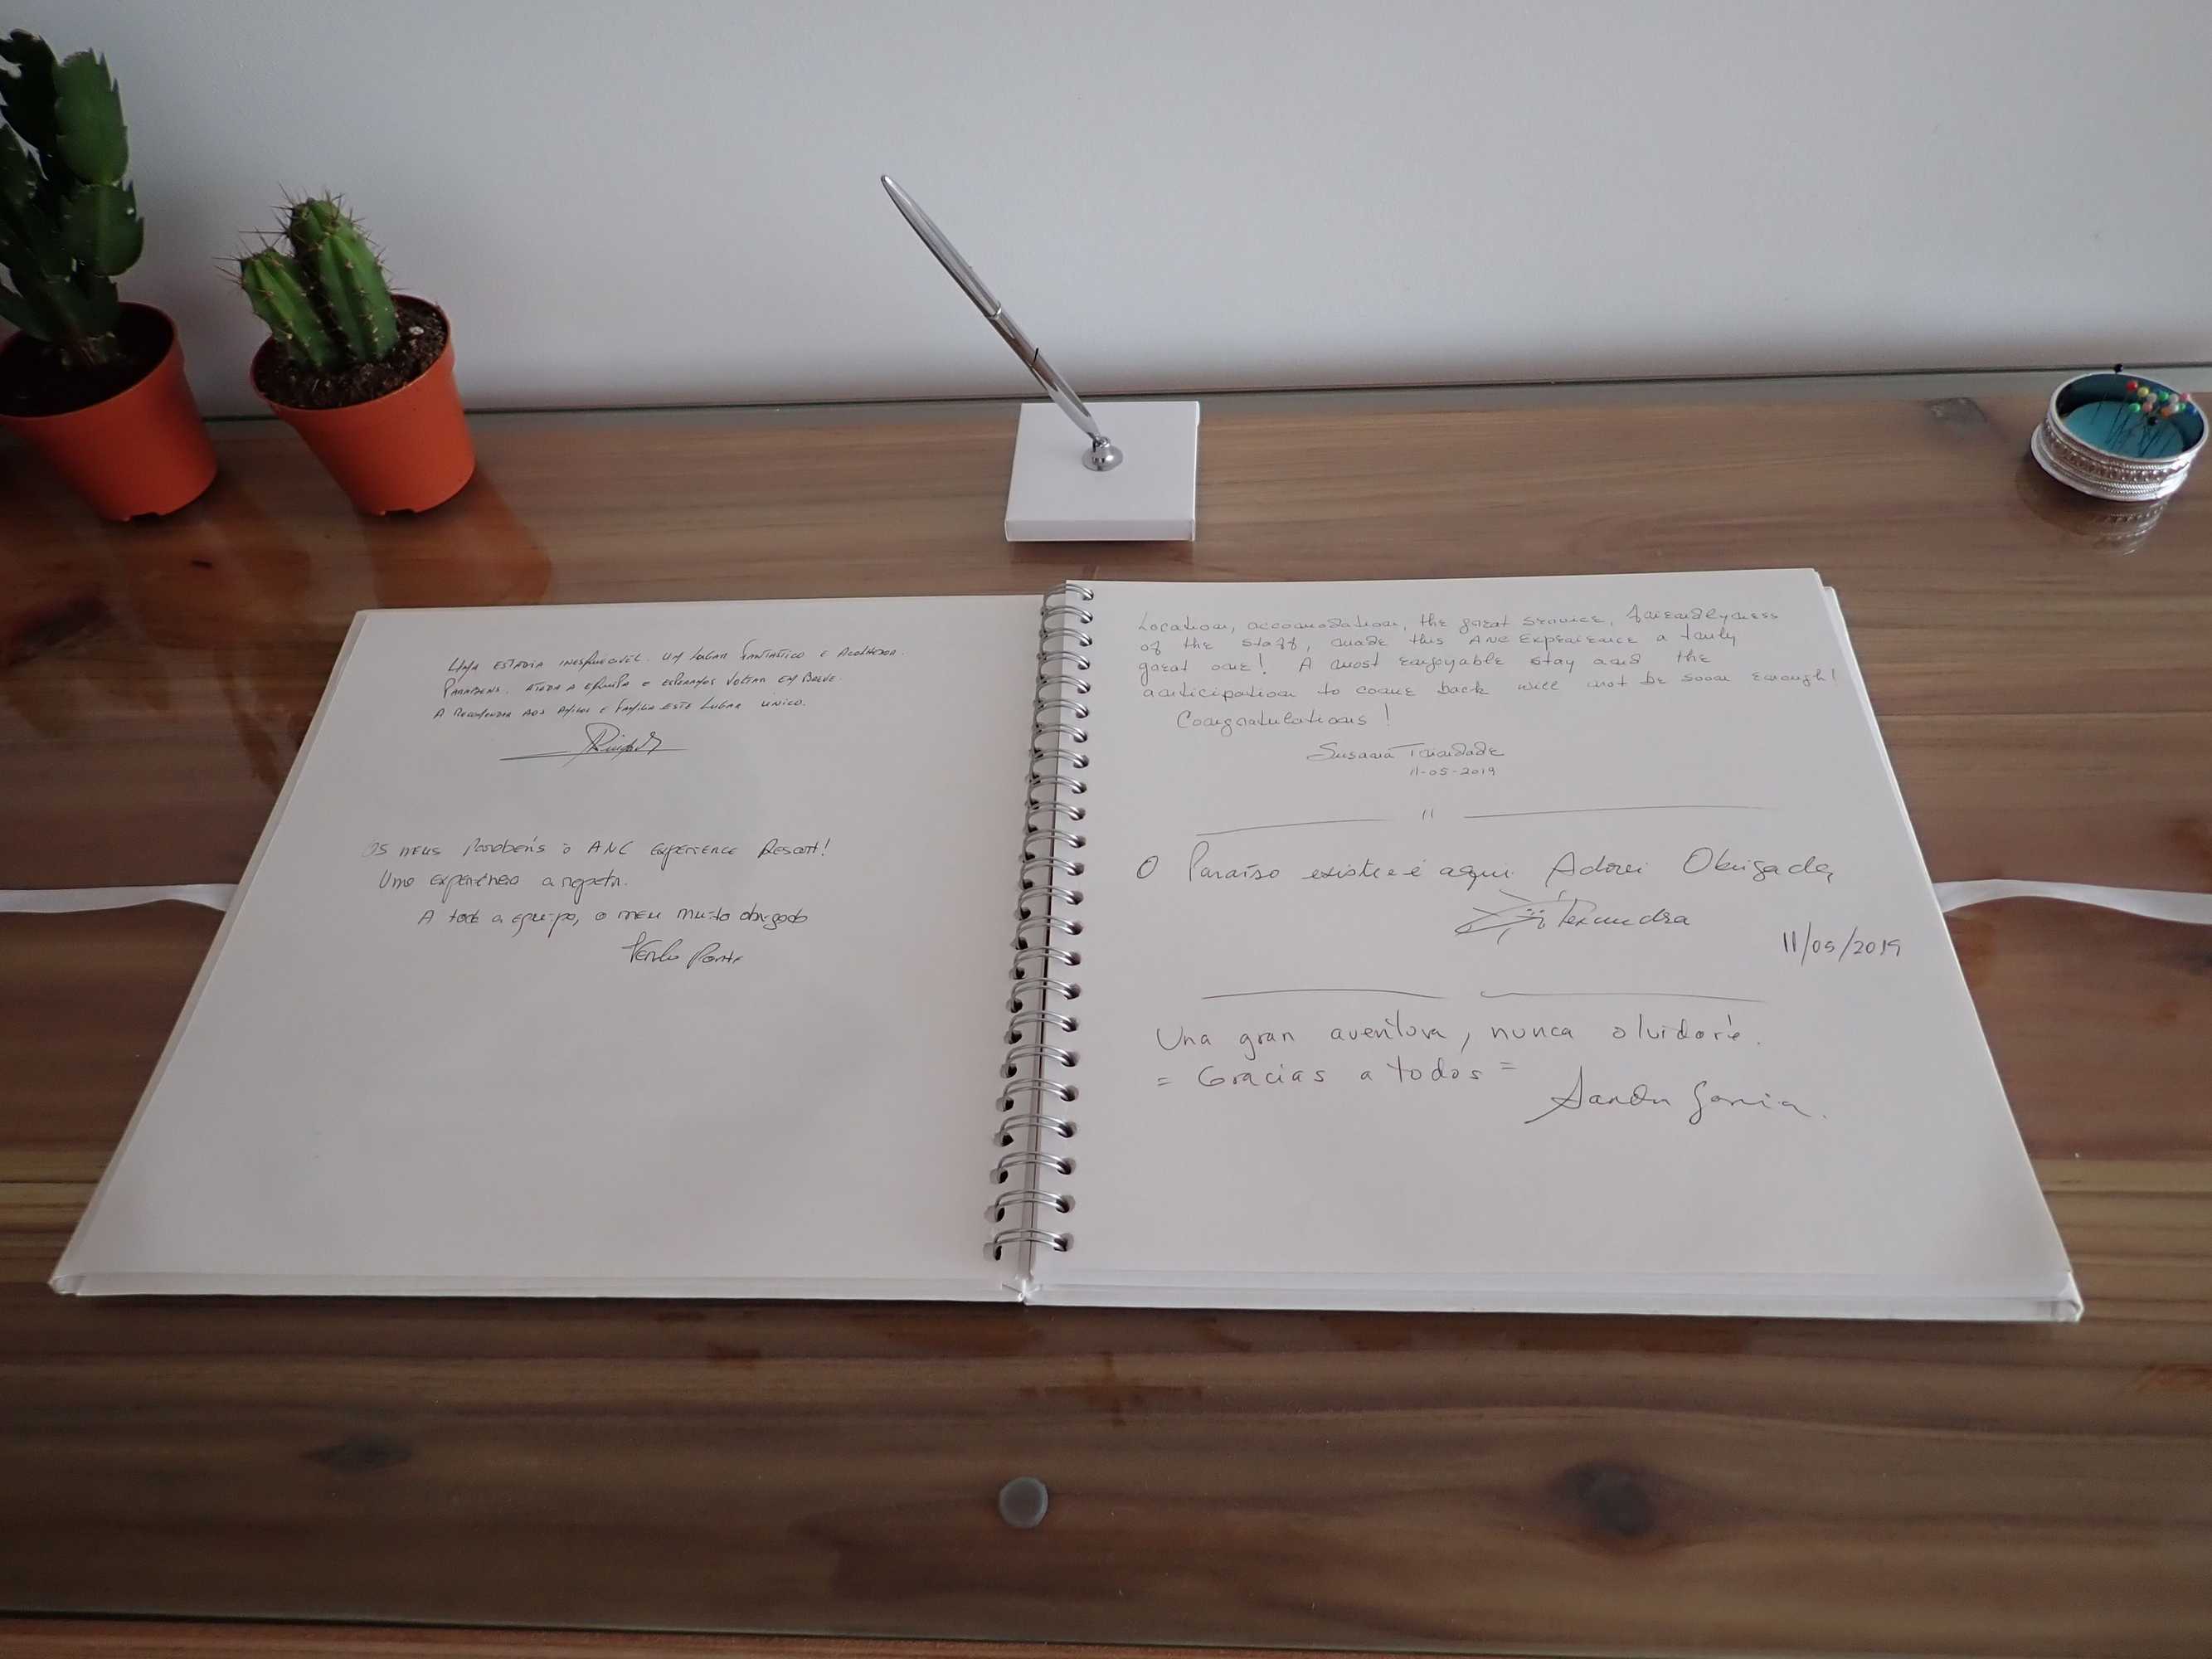 UMA ESTADIA INESQUECÍVEL. UM LUGAR FANTÁSTICO E ACOLHEDOR.
PARABÉNS. A TODA A EQUIPA E ESPERAMOS VOLTAR EM BREVE.
A RECOMENDAR AOS AMIGOS E FAMILIA ESTE LUGAR ÚNICO.
Os meus Parabéns à ANC Experience Resort!
Uma experiência a repetir.
A toda a equipa, o meu muito obrigado
Location, accomodation, the great service, friendlyness
of the staff, made this ANC Experience a truly
great one! A most enjoyable stay and the
anticipation to come back will not be soon enough!
Congratulations!
Susana Trindade
11-05-2019
O Paraíso existe e é aqui. Adorei Obrigada,
Alexandra
11/05/2019
Una gran aventura, nunca olvidaré.
= Gracias a todos =